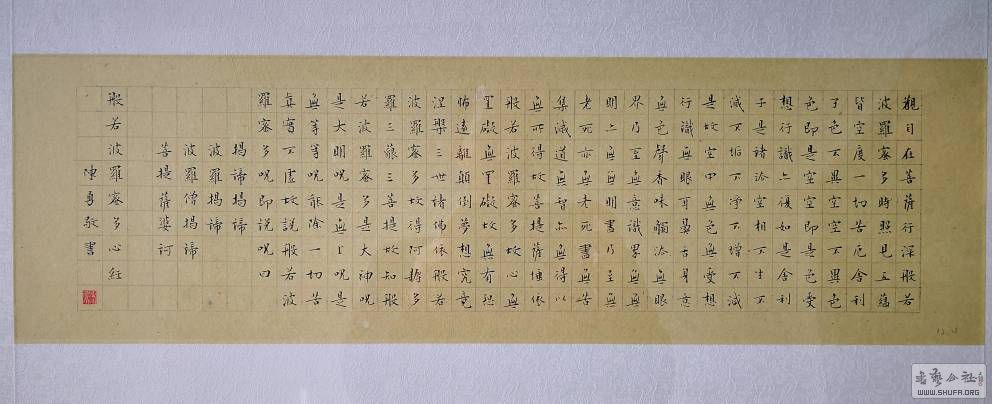 觀自在菩薩行深般若
波羅蜜多時照見五蘊
皆空度一切苦厄舍利
子色不異空空不異色
色即是空空即是色受
想行識亦復如是舍利
子是諸法空相不生不
滅不垢不淨不增不減
是故空中無色無受想
行識無眼耳鼻舌身意
無色聲香味觸法無眼
界乃至無意識界無無
明亦無無明盡乃至無
老死亦無老死盡無苦
集滅道無智亦無得以
無所得故菩提薩埵依
般若波羅蜜多故心無
罣礙無罣礙故無有恐
怖遠離顛倒夢想究竟
涅槃三世諸佛依般若
波羅蜜多故得阿耨多
羅三藐三菩提故知般
若波羅蜜多是大神呪
是大明呪是無上呪是
無等等呪能除一切苦
真實不虛故說般若波
羅蜜多呪即說呪曰
揭諦揭諦
波羅揭諦
波羅僧揭諦
菩提薩婆訶
般若波羅蜜多心經
陳勇敬書
WWW.SHUFA.ORG